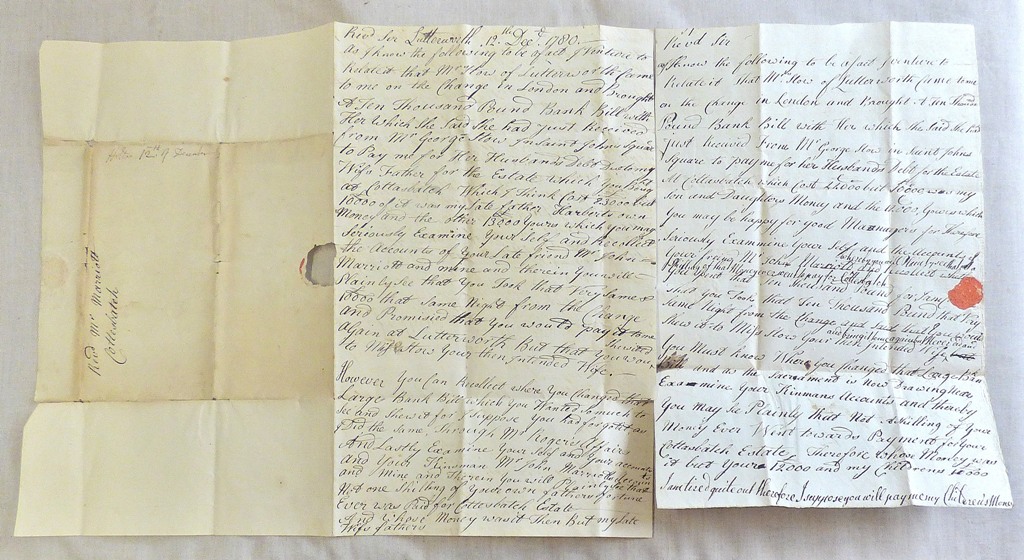 12th of
Revd Mr Marriott
Cottesbatch
Revd Sir Lutterworth 12th Decr 1780
as I know the following to be a fact I venture to
Relate it that Mrs Slow of Lutterworth Came
to me on the Change in London and Brought
A Ten Thousand Pound Bank Bill with
Her Which She Said She had Just Received
from Mr George Slow in Saint Johns Square
to Pay me for Her Husbands Debt
Wifes Father for the Estate which
at Cottasbatch Which I Think Cost 23000 but
10000 of it was my Late Father Harborts own
Money and the other 13000 Yours which you may
Seriously Examine Your Self and Recollect
the Accounts of Your Late friend Mr John
Marriott and mine and therein You will
Plainly See that You Took that Very Same
10000 that Same Night from the Change
and Promised that You would Pay it to me
Again at Lutterworth But that You
to Miss Slow Your then intended Wife
However You Can Recollect where You Changed that
Large Bank Bill which You Wanted So much to
See and Shew it for I Suppose You had forgot as
I did the Same, through Mr Rogers's Affairs
And Lastly Examine Your Self and Your accounts
and Your Kinsman Mr John Marriotts
and Mine and Therein You will Plainly See that
Not one Shilling of Your own fathers fortune
Ever was Paid for Cottasbatch Estate
And Whose Money was it Then But my Late
Wifes fathers
Revd Sir
as I know the following to be a fact I venture to
Relate it that Mrs Slow of Lutterworth Came to me
on the Change in London and Brought A Ten Thousand
Pound Bank Bill with Her which She Said She had
Just Received From Mr George Slow in Saint Johns
Square to pay me for her Husbands Debt for the Estate
At Cottasbatch which Cost 22000 but 10000 was my
Son and Daughters Money and the 12000, Yours which
You may be happy for good Managers for therefore
Seriously Examine Your Self and the Accounts of
Your friend Mr John Marriott and Recollect
that You Took that Ten Thousand Pound that Very
Same Night from the Change and
Shew it to Miss Slow Your then intended Wife
You Must know Where You Changed that Large Bank
Bill and as the Sacrament is Now Drawing Near
Examine Your Kinsmans Accounts and thereby
You May See Plainly that Not A Shilling of Your
Money Ever Went towards Payment for Your
Cottasbatch Estate Therefore whose Money was
it but Your 12000 and my Childrens 10000
I am tired quite out therefore I suppose you will pay me my Children's Money